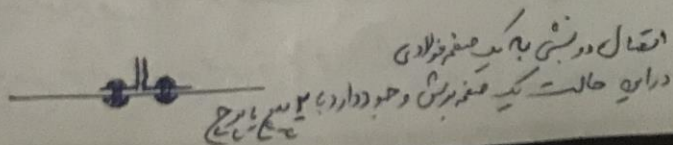 اتصال دو نبشی به یک صفحه فولادی
در این حالت یک صفحه برش وجود دارد با ۲ پیچ یا پرچ